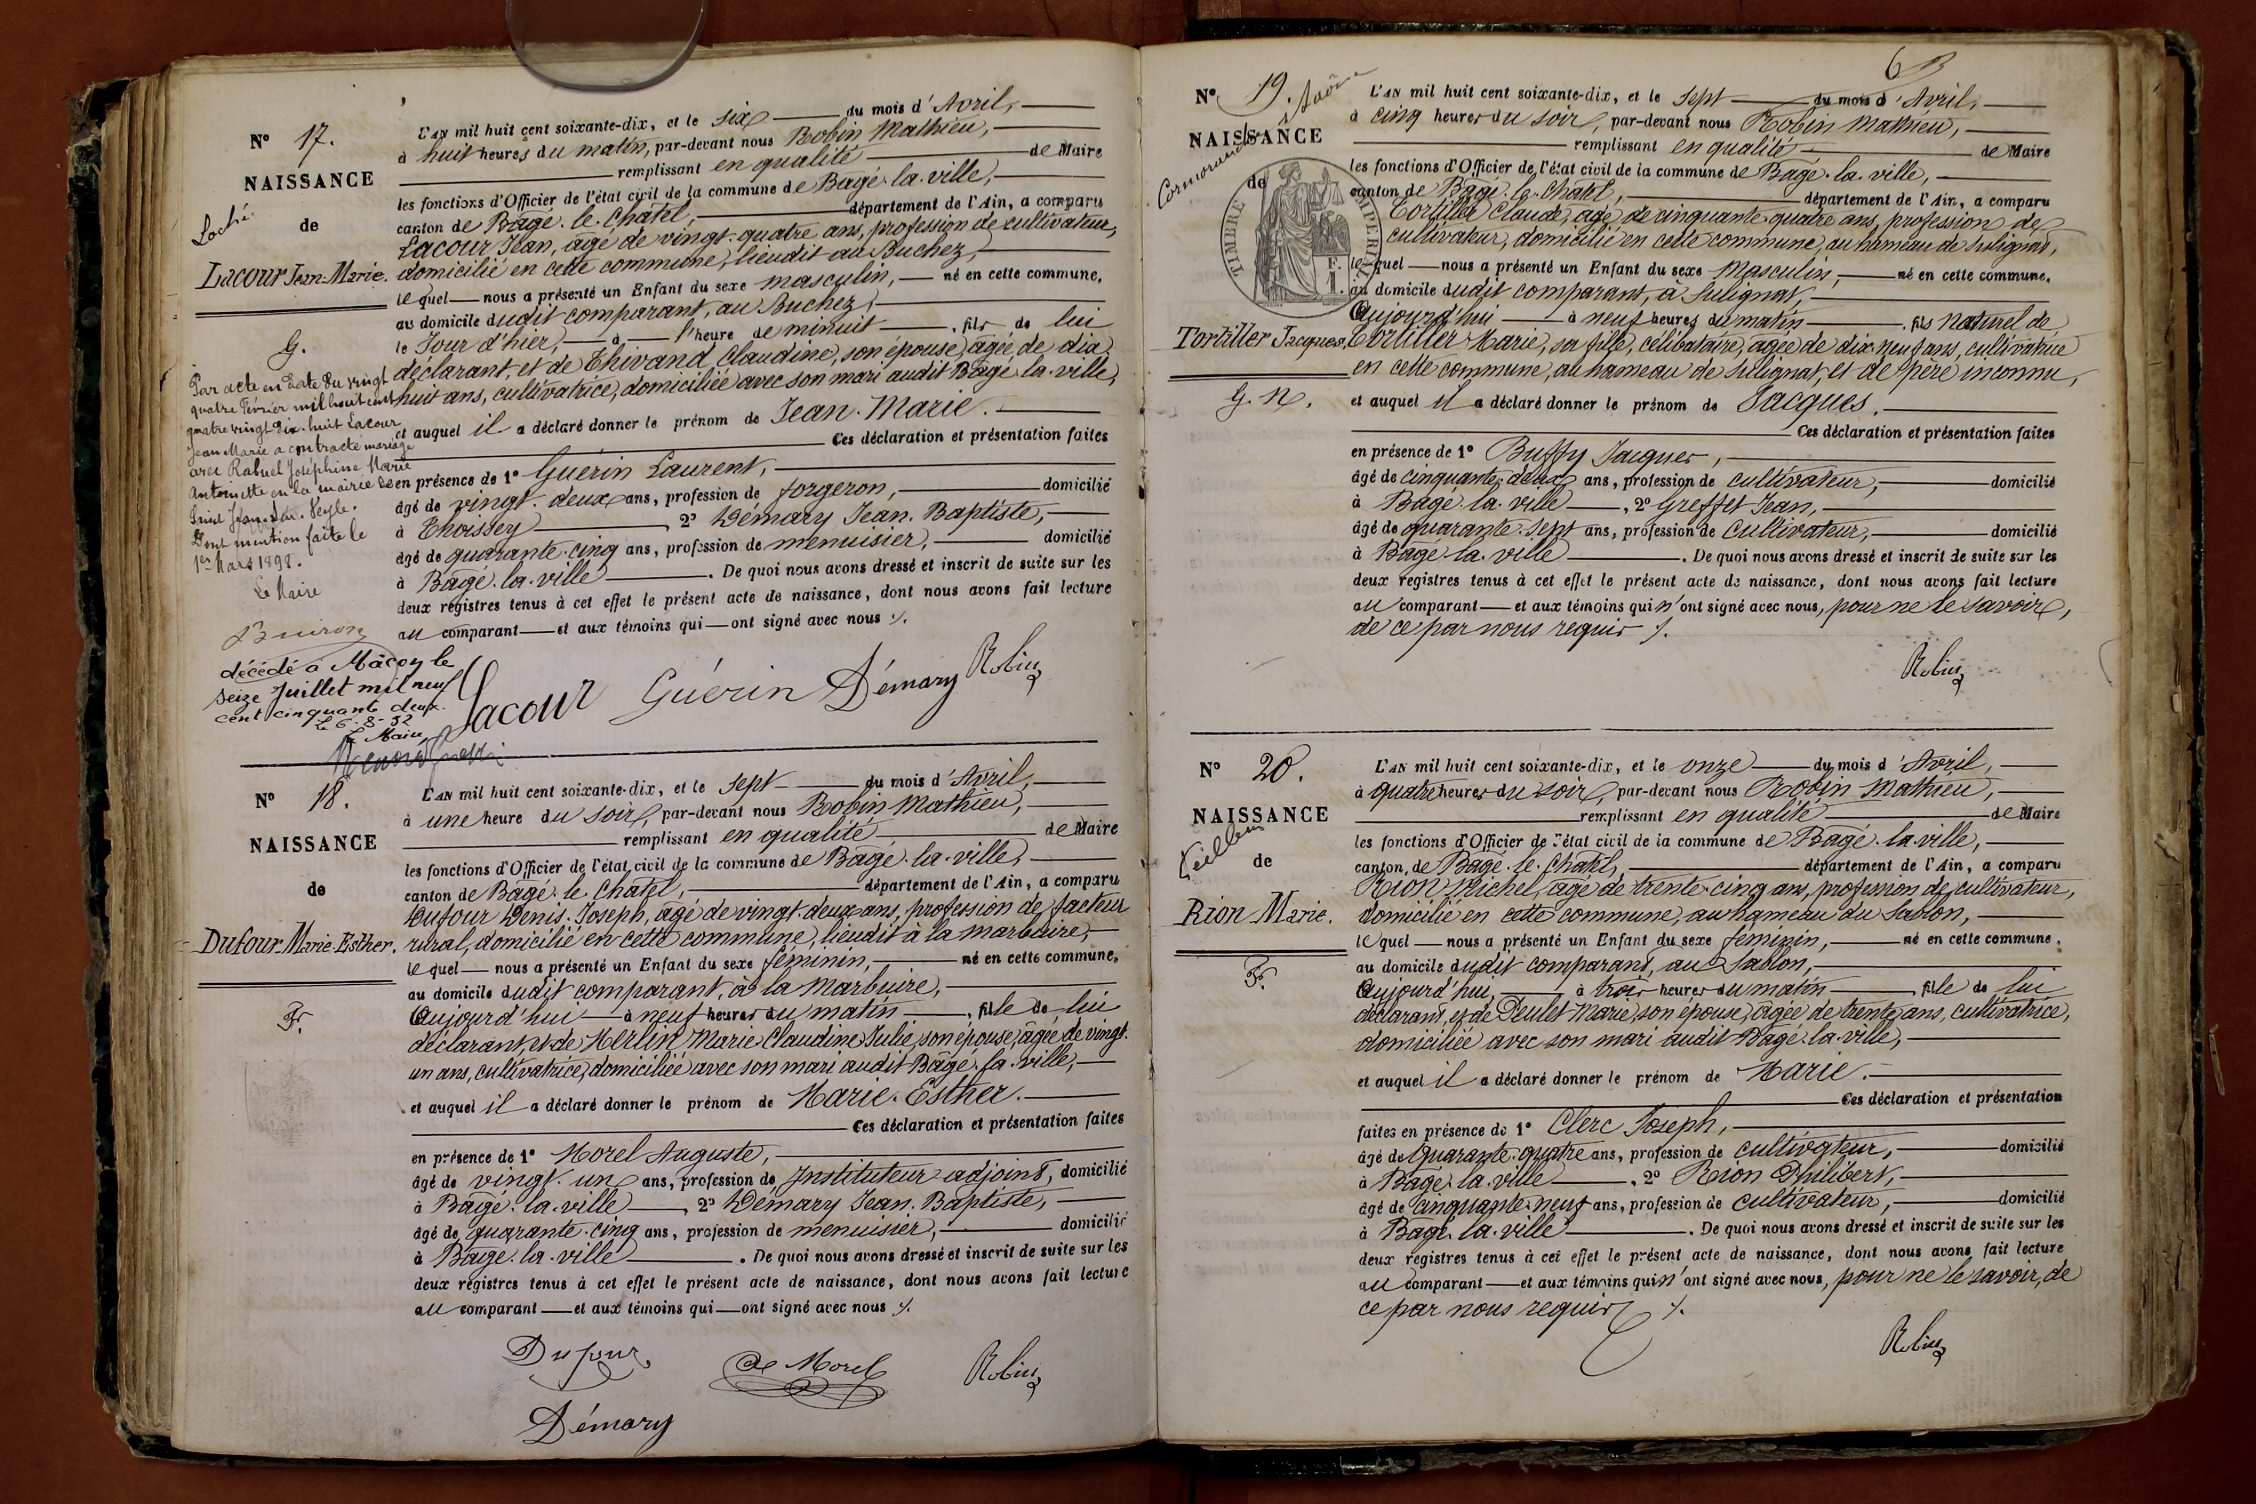 N° 17.
NAISSANCE
Loché
de
Lacour Jean-Marie.
G.
Par acte en date du vingt
quatre Février mil huit cent
quatre vingt dix-huit Lacour
Jean Marie a contracté mariage
avec Rabuel Joséphine Marie
Antoinette en la mairie de
Saint Jean-sur-Veyle.
Dont mention faite le
1er Mars 1898.
Le Maire
Buiron
décédé à Mâcon le
seize Juillet mil neuf
cent cinquante deux.
Le 6-8-52
Le Maire
L'AN mil huit cent soixante-dix, et le six du mois d'Avril,
à huit heures du matin, par-devant nous Robin Mathieu,
remplissant en qualité de Maire
les fonctions d'Officier de l'état civil de la commune de Bâgé-la-ville,
canton de Bâgé-le-Châtel, département de l'Ain, a comparu
Lacour Jean, âgé de vingt-quatre ans, profession de cultivateur,
domicilié en cette commune, lieudit au Buchez,
lequel nous a présenté un Enfant du sexe masculin, né en cette commune,
au domicile dudit comparant, au Buchez,
le Jour d'hier, à l'heure de minuit, fils de lui
déclarant, et de Thivand Claudine, son épouse, âgée de dix-
huit ans, cultivatrice, domiciliée avec son mari audit Bâgé-la-ville,
et auquel il a déclaré donner le prénom de Jean-Marie.
Ces déclaration et présentation faites
en présence de 1° Guérin Laurent,
âgé de vingt-deux ans, profession de forgeron, domicilié
à Thoissey 2° Démary Jean-Baptiste,
âgé de quarante-cinq ans, profession de menuisier, domicilié
à Bâgé-la-ville. De quoi nous avons dressé et inscrit de suite sur les
deux registres tenus à cet effet le présent acte de naissance, dont nous avons fait lecture
au comparant et aux témoins qui ont signé avec nous ./.
Lacour Guérin Démary Robin
N° 18.
NAISSANCE
de
Dufour Marie-Esther.
F.
L'AN mil huit cent soixante-dix, et le sept du mois d'Avril,
à une heure du soir, par-devant nous Robin Mathieu,
remplissant en qualité de Maire
les fonctions d'Officier de l'état civil de la commune de Bâgé-la-ville,
canton de Bâgé-le-Châtel, département de l'Ain, a comparu
Dufour Denis-Joseph, âgé de vingt-deux ans, profession de facteur
rural, domicilié en cette commune, lieudit à la Marbuire,
lequel nous a présenté un Enfant du sexe féminin, né en cette commune,
au domicile dudit comparant, à la Marbuire,
Aujourd'hui à neuf heures du matin, fille de lui
déclarant, et de Merlin Marie Claudine Julie, son épouse, âgée de vingt-
un ans, cultivatrice, domiciliée avec son mari audit Bâgé-la-ville,
et auquel il a déclaré donner le prénom de Marie-Esther.
Ces déclaration et présentation faites
en présence de 1° Morel Auguste,
âgé de vingt-un ans, profession de Instituteur adjoint, domicilié
à Bâgé-la-ville, 2° Démary Jean-Baptiste,
âgé de quarante-cinq ans, profession de menuisier, domicilié
à Bâgé-la-ville. De quoi nous avons dressé et inscrit de suite sur les
deux registres tenus à cet effet le présent acte de naissance, dont nous avons fait lecture
au comparant et aux témoins qui ont signé avec nous ./.
Dufour Morel Robin
Démary
N° 19.
NAISSANCE
Cormoranche s/ Saône
de
TIMBRE IMPERIAL
F.
1.
Tortiller Jacques.
G. N.
L'AN mil huit cent soixante-dix, et le sept du mois d'Avril,
à cinq heures du soir, par-devant nous Robin Mathieu,
remplissant en qualité de Maire
les fonctions d'Officier de l'état civil de la commune de Bâgé-la-ville,
canton de Bâgé-le-Châtel, département de l'Ain, a comparu
Tortiller Claude, âgé de cinquante-quatre ans, profession de
cultivateur, domicilié en cette commune, au hameau de Sulignat,
lequel nous a présenté un Enfant du sexe Masculin, né en cette commune,
au domicile dudit comparant, à Sulignat,
Aujourd'hui à neuf heures du matin, fils Naturel de
Tortiller Marie, sa fille, célibataire, âgée de dix-neuf ans, cultivatrice
en cette commune, au hameau de Sulignat, et de père inconnu,
et auquel il a déclaré donner le prénom de Jacques.
Ces déclaration et présentation faites
en présence de 1° Buffy Jacques,
âgé de cinquante-deux ans, profession de cultivateur, domicilié
à Bâgé-la-ville, 2° Greffet Jean,
âgé de quarante-sept ans, profession de cultivateur, domicilié
à Bâgé-la-ville. De quoi nous avons dressé et inscrit de suite sur les
deux registres tenus à cet effet le présent acte de naissance, dont nous avons fait lecture
au comparant et aux témoins qui n'ont signé avec nous, pour ne le savoir,
de ce par nous requis ./.
Robin
N° 20.
NAISSANCE
de
Rion Marie.
F.
L'AN mil huit cent soixante-dix, et le onze du mois d'Avril,
à quatre heures du soir, par-devant nous Robin Mathieu,
remplissant en qualité de Maire
les fonctions d'Officier de l'état civil de la commune de Bâgé-la-ville,
canton de Bâgé-le-Châtel, département de l'Ain, a comparu
Rion Michel, âgé de trente-cinq ans, profession de cultivateur,
domicilié en cette commune, au hameau du Sablon,
lequel nous a présenté un Enfant du sexe féminin, né en cette commune,
au domicile dudit comparant, au Sablon,
Aujourd'hui, à trois heures du matin, fille de lui
déclarant, et de Peulet Marie, son épouse, âgée de trente ans, cultivatrice,
domiciliée avec son mari audit Bâgé-la-ville,
et auquel il a déclaré donner le prénom de Marie.
Ces déclaration et présentation
faites en présence de 1° Clerc Joseph,
âgé de Quarante-quatre ans, profession de cultivateur, domicilié
à Bâgé-la-ville, 2° Rion Philibert,
âgé de Cinquante-neuf ans, profession de cultivateur, domicilié
à Bâgé-la-ville. De quoi nous avons dressé et inscrit de suite sur les
deux registres tenus à cet effet le présent acte de naissance, dont nous avons fait lecture
au comparant et aux témoins qui n'ont signé avec nous, pour ne le savoir, de
ce par nous requis ./.
Robin